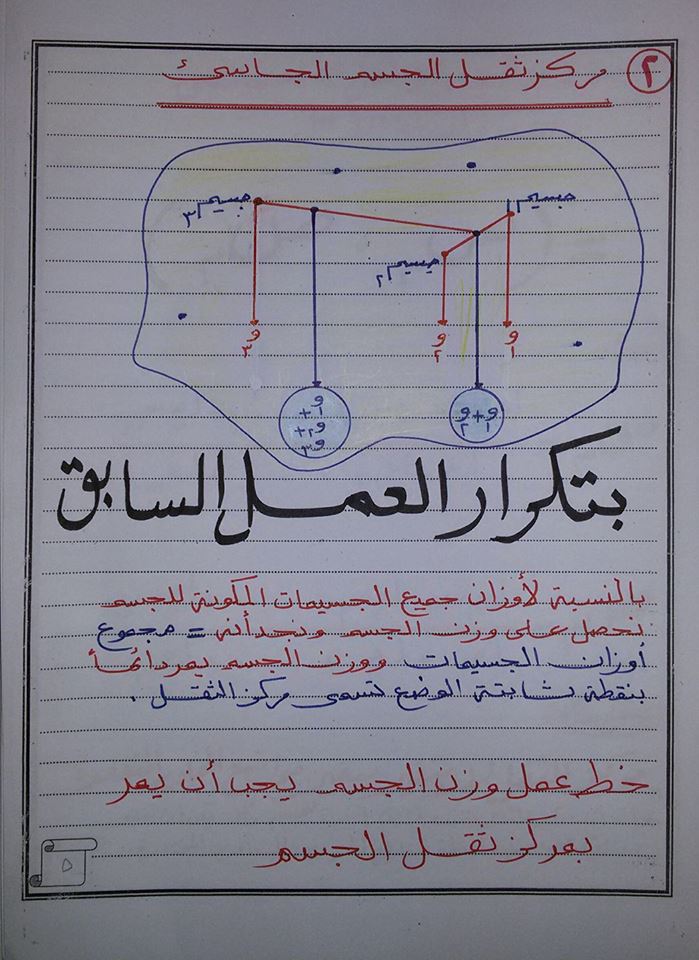 ٢ مركز ثقل الجسم الجاسئ
جسيم١
جسيم٣
جسيم٢
و١
و٢
و٣
و١ + و٢
و١ +
و٢ +
و٣
بتكرار العمل السابق
بالنسبة لأوزان جميع الجسيمات المكونة للجسم
نحصل على وزن الجسم ونجد أنه = مجموع
أوزان الجسيمات ووزن الجسم يمر دائماً
بنقطة ثابتة الوضع تسمى مركز الثقل .
خط عمل وزن الجسم يجب أن يمر
بمركز ثقل الجسم
٥